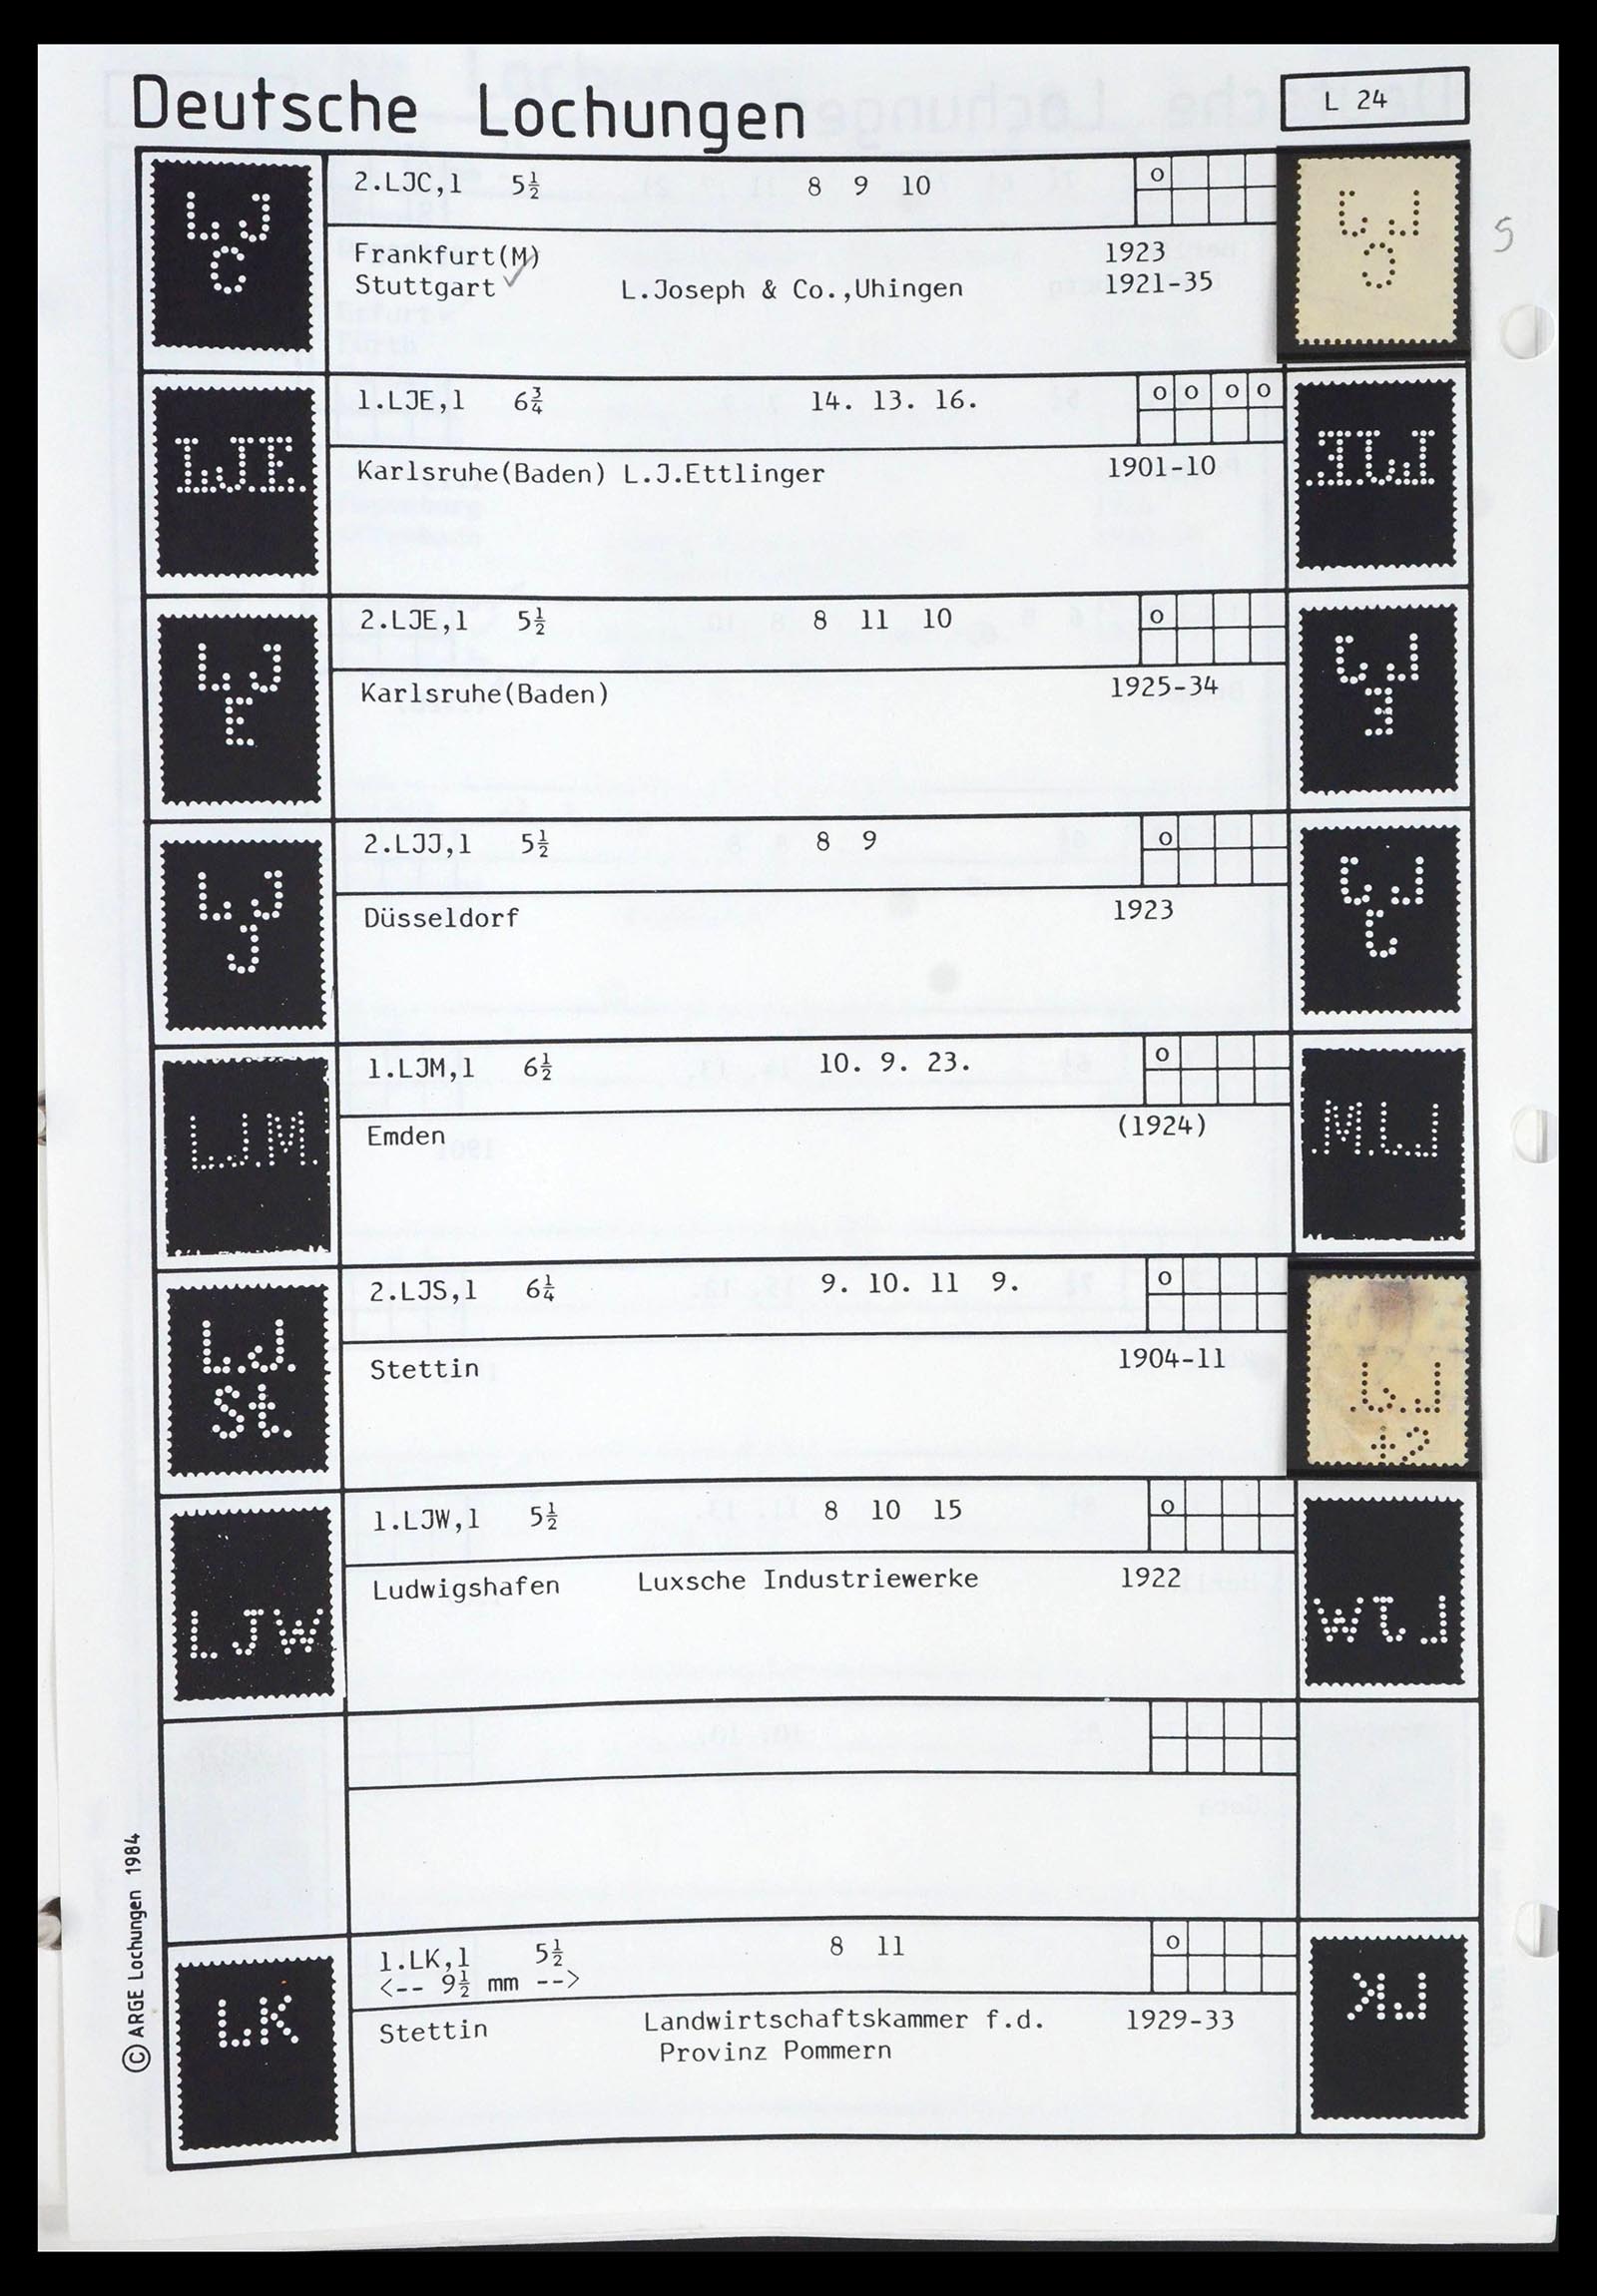 Deutsche Lochungen
L 24
LJ
C
2.LJC,1 5½ 8 9 10 o
Frankfurt(M) 1923
Stuttgart ✓ L.Joseph & Co.,Uhingen 1921-35
5
L.J.E.
1.LJE,1 6¾ 14. 13. 16. o o o o
Karlsruhe(Baden) L.J.Ettlinger 1901-10
LJ
E
2.LJE,1 5½ 8 11 10 o
Karlsruhe(Baden) 1925-34
LJ
J
2.LJJ,1 5½ 8 9 o
Düsseldorf 1923
L.J.M.
1.LJM,1 6½ 10. 9. 23. o
Emden (1924)
L.J.
St.
2.LJS,1 6¼ 9. 10. 11 9. o
Stettin 1904-11
LJW
1.LJW,1 5½ 8 10 15 o
Ludwigshafen Luxsche Industriewerke 1922
LK
1.LK,1 5½ 8 11 o
<-- 9½ mm -->
Stettin Landwirtschaftskammer f.d. 1929-33
Provinz Pommern
© ARGE Lochungen 1984